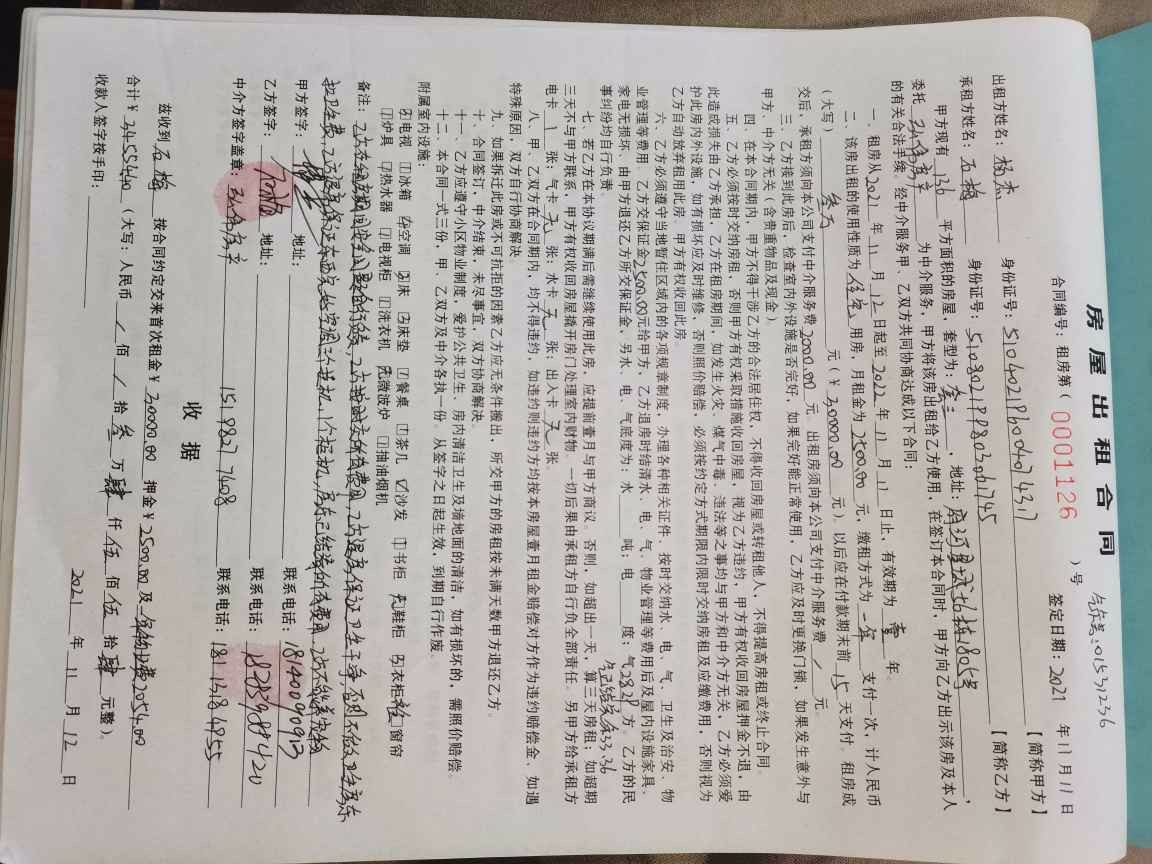 房屋出租合同
合同编号：租房第（0001126）号 签定日期：2021年11月11日
出租方姓名：杨杰 身份证号：【简称甲方】
承租方姓名：石梅 身份证号：51080219803061745【简称乙方】
甲方现有136平方面积的房屋，套型为：套三，地址：，
委托 为中介服务，甲方将该房出租给乙方使用，在签订本合同时，甲方向乙方出示该房及本人
的有关合法手续。经中介服务甲、乙双方共同协商达成以下合同：
一、租房从2021年11月12日起至2022年11月11日止，有效期为壹年。
二、该房出租的使用性质为住家用房，月租金为2500.00元，缴租方式为一年支付一次，计人民币
（大写）叁万元（￥30000.00元）。以后应在付款期末前15天支付。租房成
交后，承租方须向本公司支付中介服务费2000.00元。出租房须向本公司支付中介服务费/元。
三、乙方接到此房后，检查室内外设施是否完好，如果完好能正常使用，乙方应及时更换门锁，如果发生意外与
甲方、中介方无关（含贵重物品及现金）
四、在本合同期内，甲方不得干涉乙方的合法居住权，不得收回房屋或转租他人，不得提高房租或终止合同。
五、乙方必须按时交纳房租，否则甲方有权采取措施收回房屋，视为乙方违约，甲方有权收回房屋押金不退，由
此造成损失由乙方承担，乙方在租房期间，如发生火灾、煤气中毒、违法等之事均与甲方和中介方无关，乙方必须爱
护此房内外设施，如有损坏应及时维修，否则照价赔偿。必须按约定方式期限内限时交纳房租及应缴费用，否则视为
乙方自动放弃租用此房。甲方有权收回此房。
六、乙方必须遵守当地暂住区域内的各项规章制度，办理各种相关证件，按时交纳水、电、气、卫生及治安、物
业管理等费用。乙方交保证金2500.00元给甲方，乙方退房时结清水、电、气、物业管理等费用后及屋内设施家具、
家电无损坏，由甲方退还乙方所交保证金，另水、电、气底度为：水 吨；电 度；气2828方。乙方的民
事纠纷均自行负责。
七、若乙方在本协议期满后需继续使用此房，应提前壹月与甲方商议。否则，如超出一天，算三天房租；如超期
三天不与甲方联系，甲方有权收回房屋捅开房门处理室内财物。一切后果由承租方自行负全部责任。另甲方给承租方
电卡1张；气卡无张；水卡无张；出入卡无张。
八、甲、乙双方在合同期内，均不得违约，如违约则违约方均按本房屋壹月租金赔偿对方作为违约赔偿金，如遇
特殊原因，双方自行协商解决。
九、如果拆迁此房或不可抗拒的因素乙方应无条件搬出，所交甲方的房租按未满天数甲方退还乙方。
十、合同签订，中介结束，未尽事宜，双方协商解决。
十一、乙方应遵守小区物业制度，爱护公共卫生、房内清洁卫生及墙地面的清洁，如有损坏的，需照价赔偿。
十二、本合同一式三份，甲、乙双方及中介各执一份。从签字之日起生效，到期自行作废。
附属室内设施：
电视 冰箱 空调 床 床垫 餐桌 茶几 沙发 书柜 鞋柜 衣柜 窗帘
炉具 热水器 电视柜 洗衣机 微波炉 抽油烟机
备注：
甲方签字： 地址： 联系电话：18140090913
乙方签字：石梅 地址： 联系电话：18283988420
中介方签字盖章： 15198277408 联系电话：18113184955
收 据
兹收到石梅按合同约定交来首次租金￥30000.00 押金￥2500.00及2054.00
合计￥34554.00（大写：人民币/佰/拾叁万肆仟伍佰伍拾肆元整）。
收款人签字按手印： 2021年11月12日